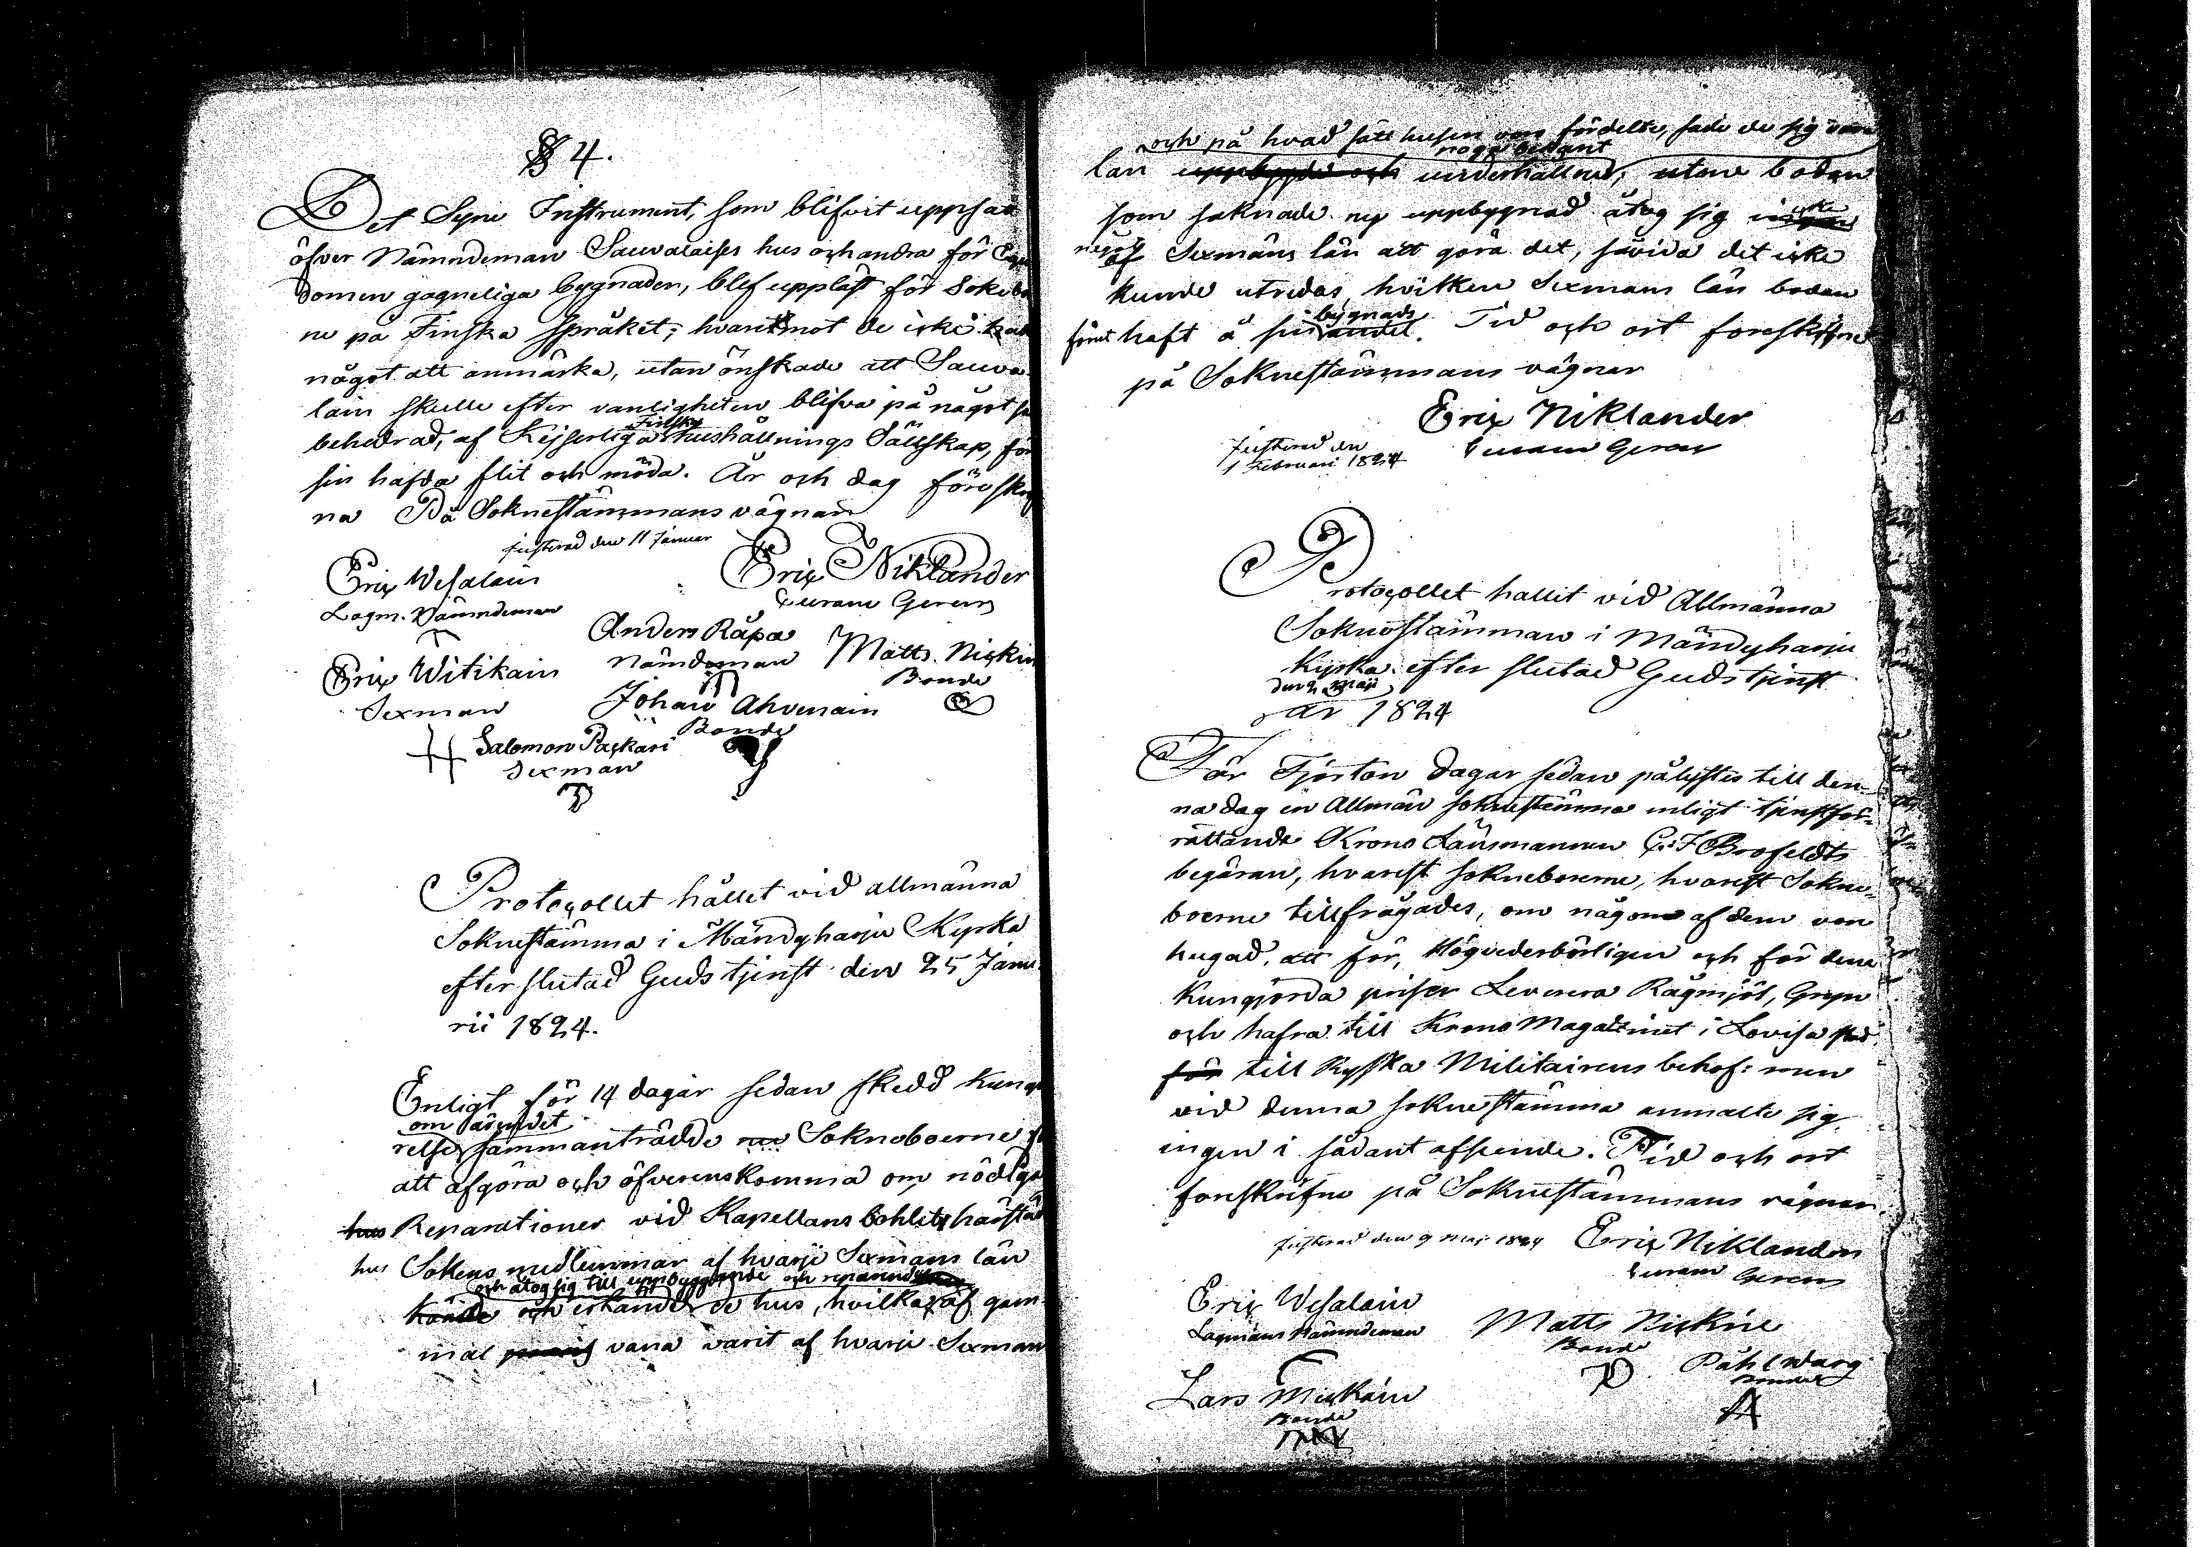 § 4.
Det Syne Instrument, som blifvit uppsat
öfver Nämndeman Sauvalaises hus och andra för Egen
domen gagneliga bygnader, blef uppläst för Sokebo
ne på Finska språket; hvaremot de icke had
något att anmärka, utan önskade att Sauva
lain skulle efter vanligheten blifva på något sä
behedrad, af Kejserliga Finska hushållnings Sällskap, för
sin hafda flit och möda. År och dag föreskrif
na På Soknestämmans vägnar
justerad den 11 Januar
Eric Niklander
Curam Gerens
Eric Wesalain
Lagm. Nämndeman
Anders Räpa
Nämdeman
Matts Niskin
Bonde
Eric Witikain
Sexman
Johan Ahvenain
Bonde
Salomon Packari
Sexman
Protocollet hållet vid allmänna
Soknestämma i Mändyharju Kyrka
efter slutad Gudstjenst den 25 Janu
rii 1824.
Enligt för 14 dagar sedan skedd kungö
relse om ärendet sammanträdde Sokneboerne
att afgöra och öfverenskomma om nödiga
hus Reparationer vid Kapellans bohlet, härstäd
hus Sokens medlemmar af hvarje Sexmans län
och åtog sig till uppbyggande och reparerande
kände och erkände de hus, hvilka af gam
mal vana varit af hvarje Sexman
och på hvad sätt husen voro fördelte, sade de sig vara
noga bekant
län uppbygde och underhållne, utom boden
som saknade ny uppbygnad åtog sig icke
något af Sexmans län att göra det, såvida det icke
kunde utredas, hvilken Sexmans län boden
förut haft å sin bygnads andel. Tid och ort föreskrifne
på Soknestämmans vägnar
Eric Niklander
Curam Gerens
Justerad den
1 Februari 1824
Protocollet hållit vid Allmänna
Soknestämman i Mändyharju
Kyrka efter slutad Gudstjenst
den 2 Maji
år 1824
För Fjorton dagar sedan pålystes till den-
na dag en Allmän soknestämma enligt tjenstför-
rättande Krono Länsmannen G: F Brofeldts
begäran, hvarest sokneboerne, hvarest Sokne-
boerne tillfrågades, om någon af dem vore
hugad, att för, Högvederbörligen och för dem
Kungjorda priser Leverera Rågmjöl, Gryn
och hafra till Krono Magazinet i Lovisa stad
för till Ryska Militairens behof: men
vid denna soknestämma anmälte sig
ingen i sådant afseende. Tid och ort
föreskrifne på Soknestämmans vägnar,
Justerad den 9 Maj 1824
Eric Niklander
Curam Gerens
Eric Wesalain
Lagmans Nämndeman
Matts Niskine
Bonde
Påhl Warg
Bonde
Lars Muckain
Bonde